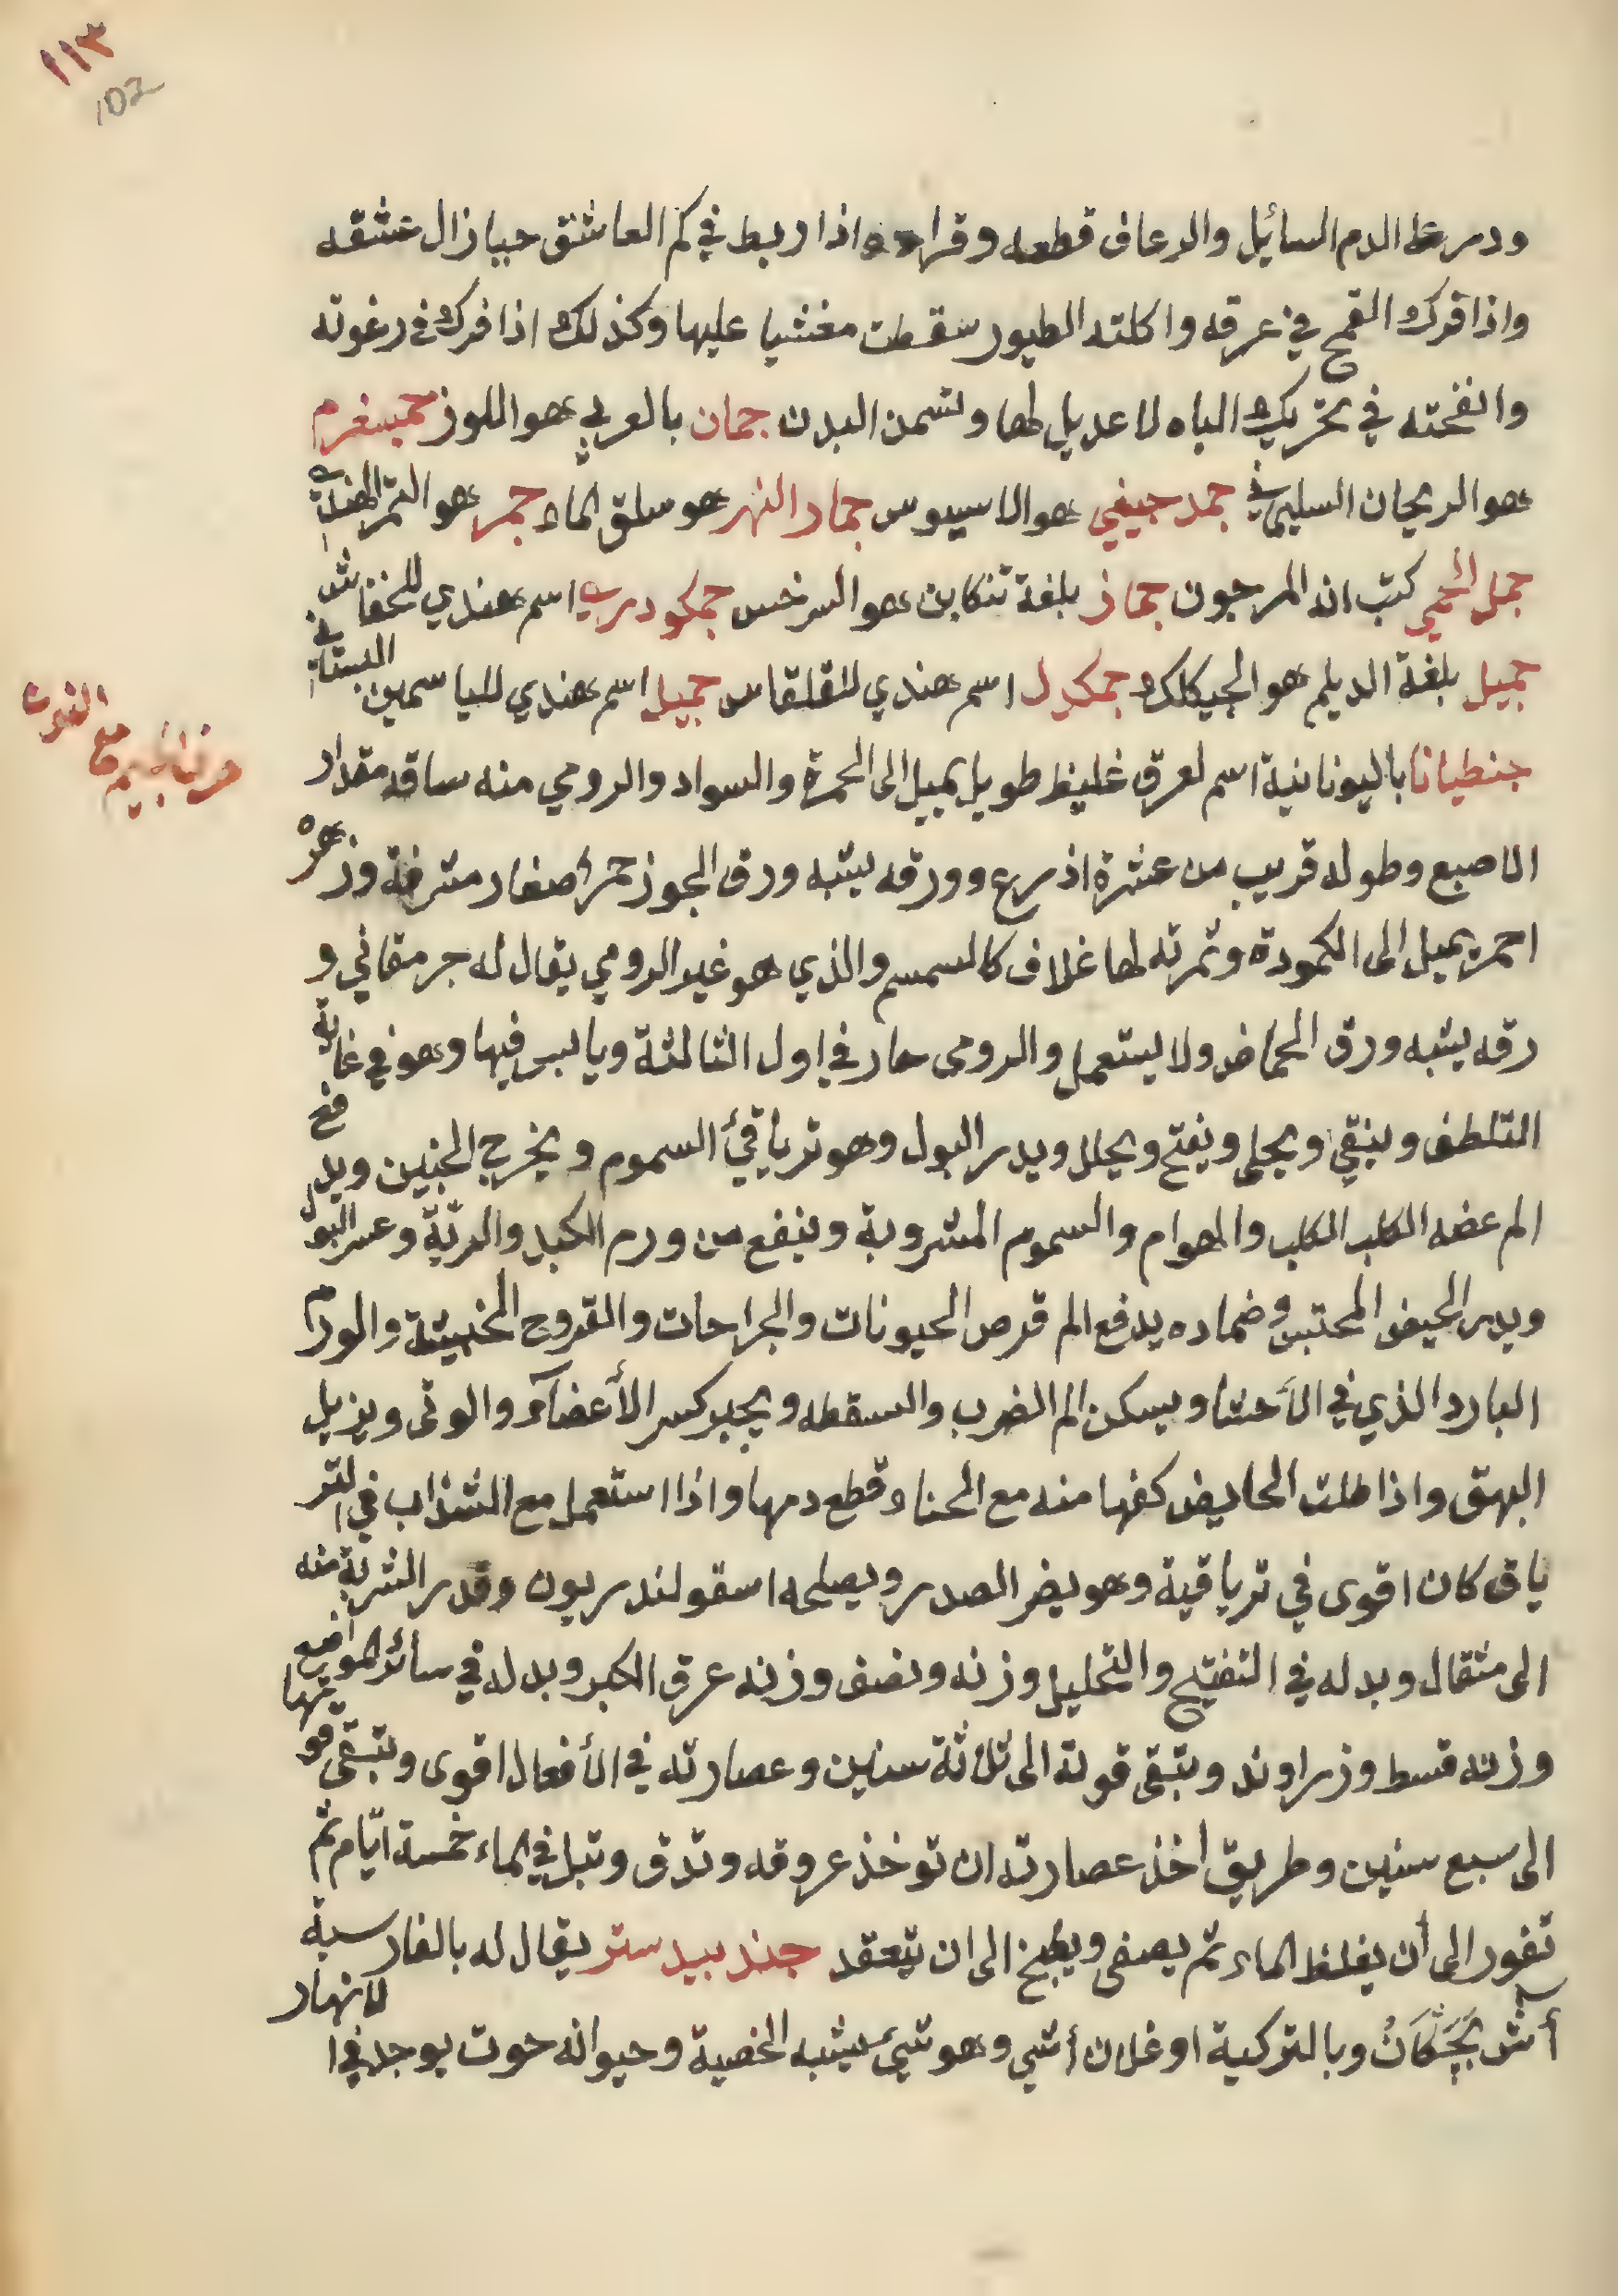 ١١٣
102
ودر على الدم السائيل والرعاف قطعه وقراده اذا ربط في كم العاشق حيا زال عشقه
واذا فرك القمح في عرقه واكلته الطيور سقطت مغشيا عليها وكذلك اذا فرك في رغوته
وانفحته في تحريك الباه لا عديل لها وتسمن البدن جمان بالعربي هو اللوز جمسفرم
هو الريحان السليماني جمد جيفي هو الاسيوس جماد النهر هو سلق الماء جمر هو التمر الهندي
جمل الحمي كتب انه المرجون جماز بلغة تنكابن هو السرخس جمكودرب اسم هندي للخفاش
جميل بلغة الديلم هو الجيكلك جمكدل اسم هندي للقلقاس جميل اسم هندي للياسمين البستاني
جنطيانا باليونانية اسم لعرق غليظ طويل يميل الى الحمرة والسواد والرومي منه ساقه مقدار
الاصبع وطوله قريب من عشرة اذرع وورقه يشبه ورق الجوز حمر صغار مشرفة وزهره
احمر يميل الى الكمودة وثمرته لها غلاف كالسمسم والذي هو غير الرومي يقال له جرمقاني و
رقه يشبه ورق الحماض ولا يستعمل والرومي حار في اول الثالثة ويابس فيها وهو في غاية
التلطف وينقي ويجلي ويفتح ويحلل ويدر البول وهو ترياقي السموم ويخرج الجنين ويدفع
الم عضه الكلب الكلب والهوام والسموم المشروبة وينفع من ورم الكبد والريّة وعسر البول
ويدر الحيض المحتبس وضماده يدفع الم قرص الحيونات والجراحات والقروح الخبيثة والورم
البارد الذي في الأحشا ويسكن الم الضرب والسقطه ويجبر كسر الأعضآء والوثى ويزيل
البهق واذا طلت الحايض كفها منه مع الحناء قطع دمها واذا استعمل مع الشذاب في التر
ياق كان اقوى في ترياقية وهو يضر الصدر ويصلحه اسقولندريون وقدر الشربة منه
الى مثقال وبدله في التفتيح والتحليل وزنه ونصف وزنه عرق الكبر وبدله في سائر المواضع
وزنه قسط وزراوند وتبقى قوته الى ثلاثة سنين وعصارته في الأفعال اقوى وتبقى قوتها
الى سبع سنين وطريق اخذ عصارته ان توخذ عروقه وتدق وتبل في الماء خمسة ايّام ثم
تفور الى أن يغلظ الماء ثم يصفى ويطبخ الى ان يتعقد جند بيدستر يقال له بالفارسية
أش بجكان وبالتركية اوغلان أشي وهو شيء يشبه الخصية وحيوانه حوت يوجد في الانهار